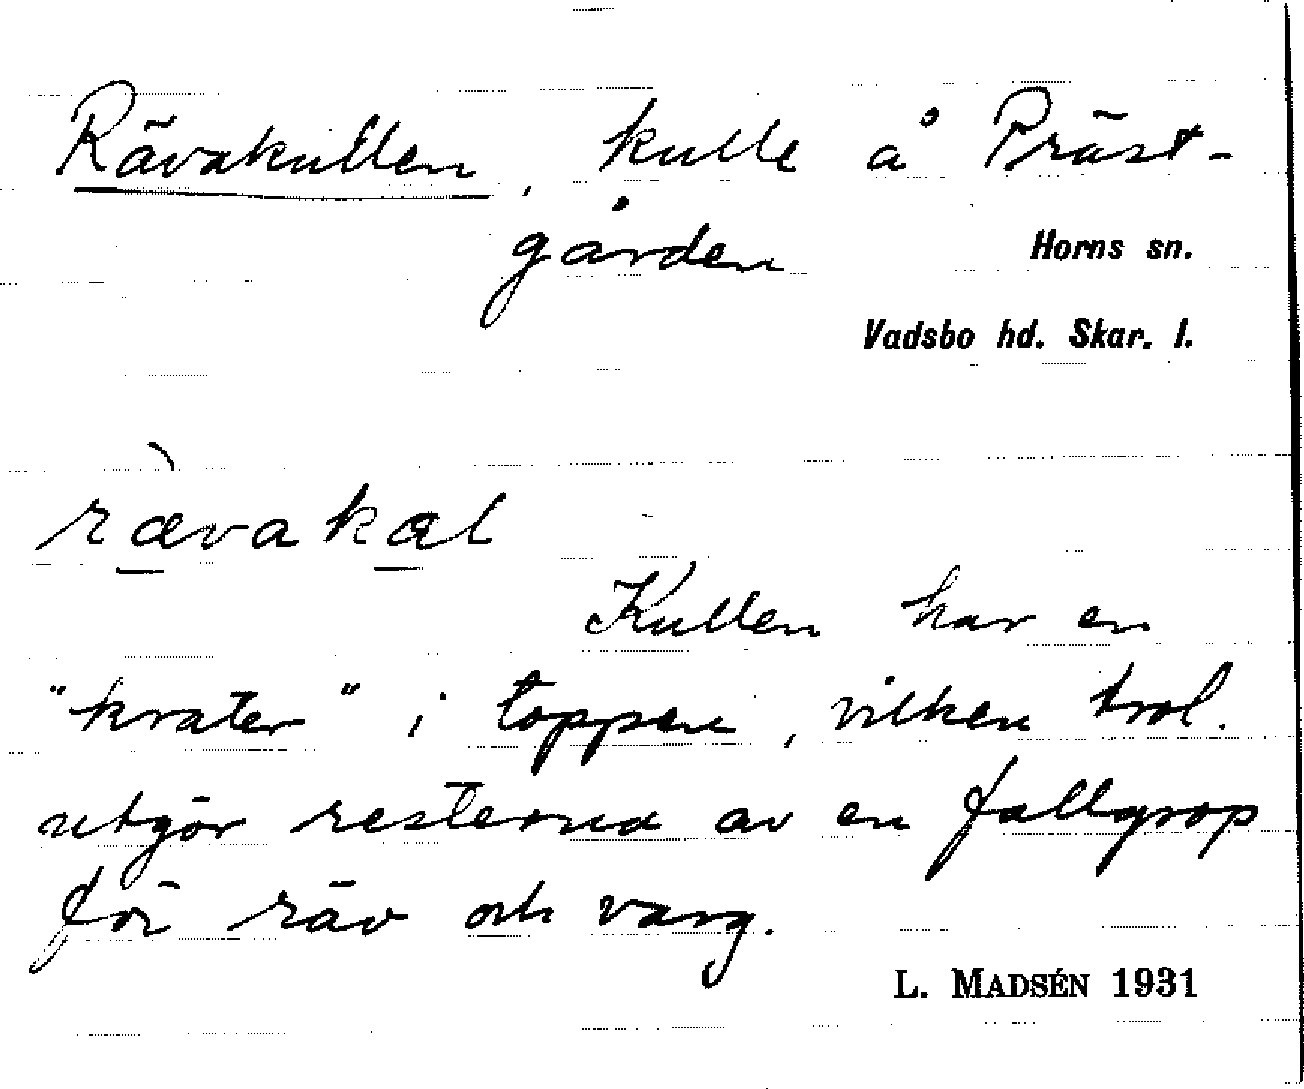 Rävakullen, kulle å Präst-
gården
Horns sn.
Vadsbo hd. Skar. l.
rævakæl
Kullen har en
"krater" i toppen, vilken trol.
utgör resterna av en fallgrop
för räv och varg.
L. MADSÉN 1931